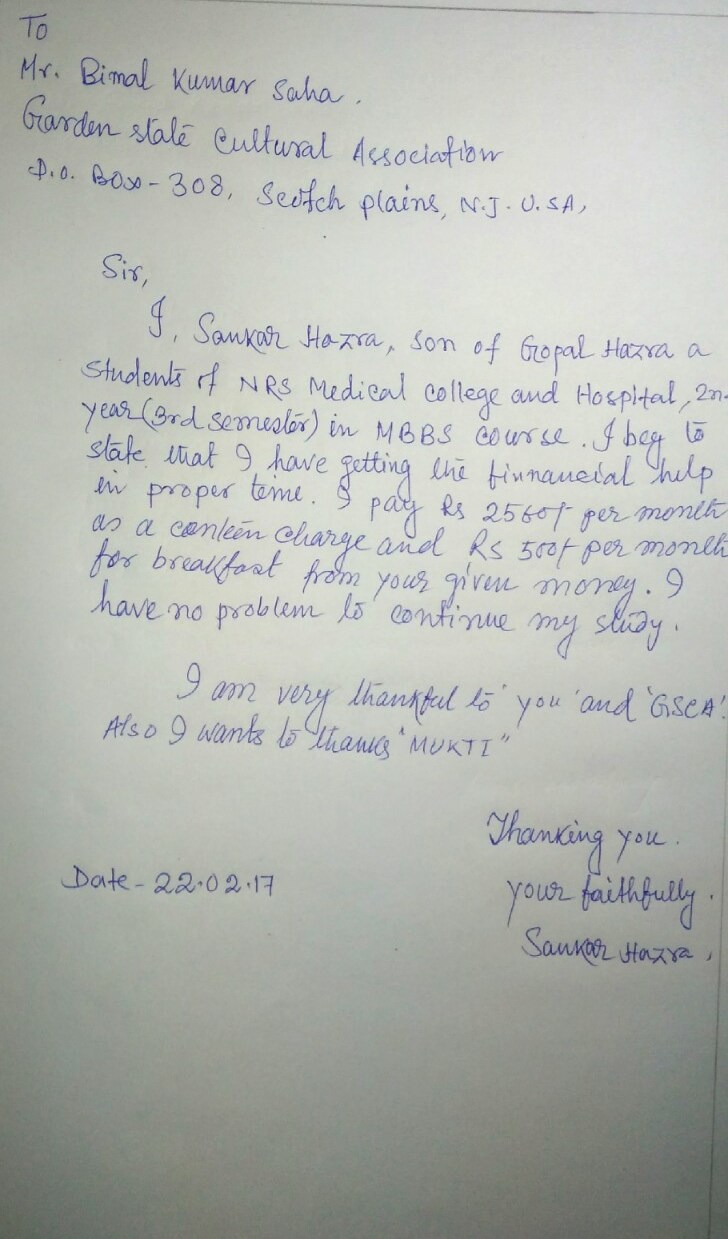 To
Mr. Bimal Kumar Saha.
Garden state Cultural Association
P.O. Box-308, Scotch plains, N.J. U.SA,
Sir,
I, Sankar Hazra, son of Gopal Hazra a
students of NRS Medical college and Hospital, 2n
year (3rd semester) in MBBS course. I beg to
state that I have getting the finnancial help
in proper time. I pay Rs 2560/- per month
as a canteen charge and RS 500/- per month
for breakfast from your given money. I
have no problem to continue my study.
I am very thankful to 'you' and 'GSCA'.
Also I wants to thanks "MUKTI"
Thanking you.
Date - 22.02.17
your faithfully.
Sankar Hazra,